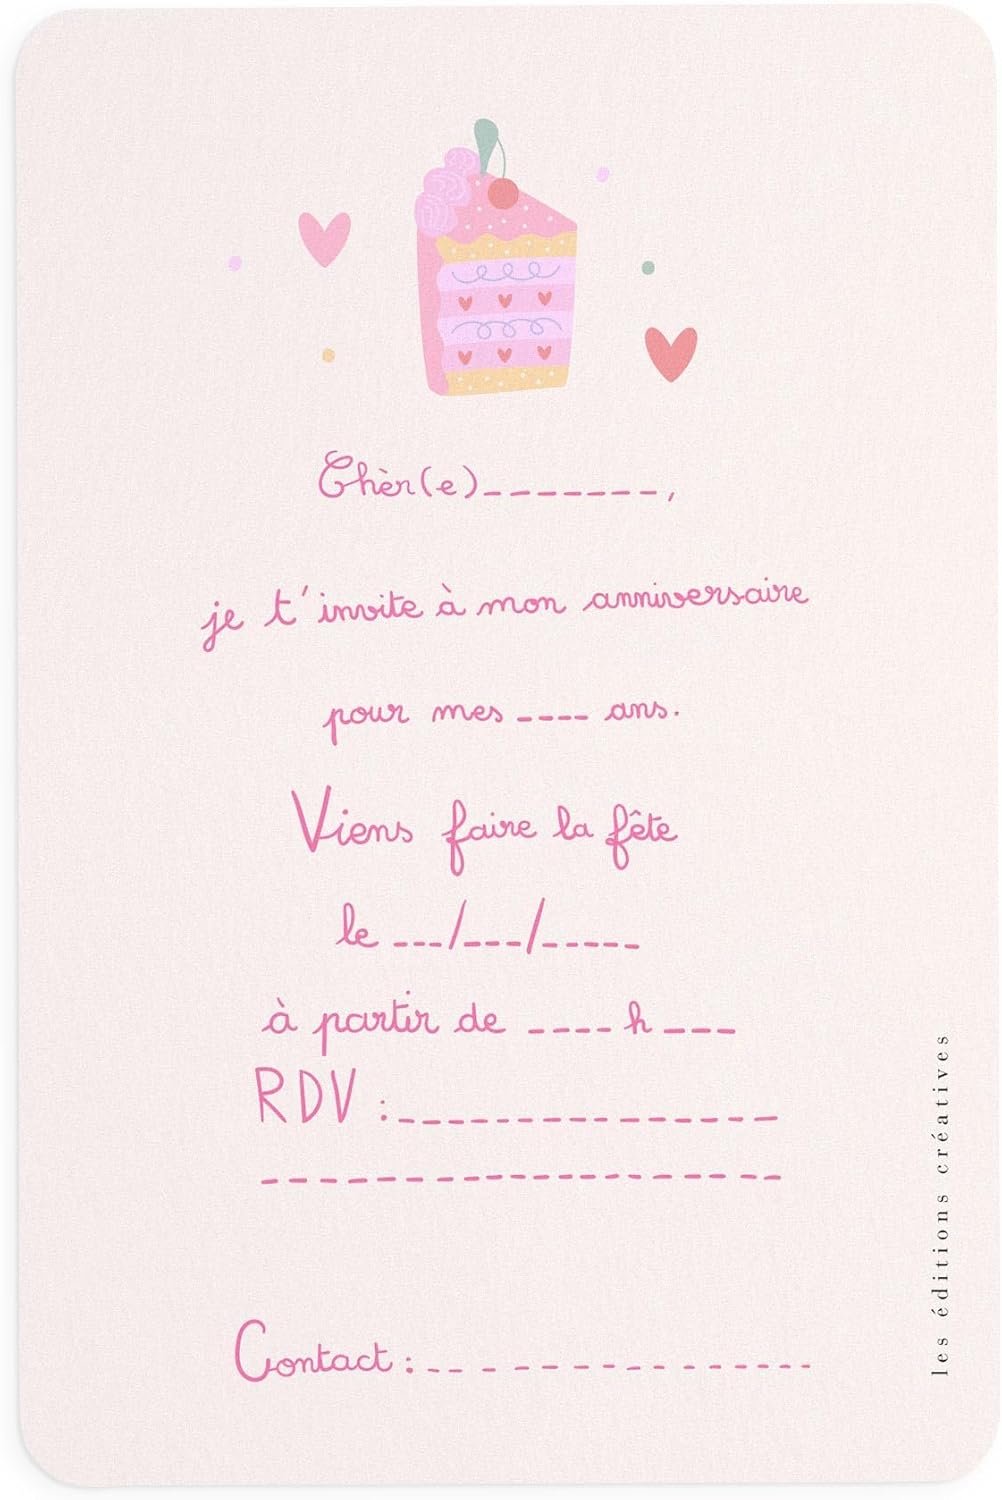 Chèr(e)_ _ _ _ _ _ _ ,
je t'invite à mon anniversaire
pour mes _ _ _ _ ans.
Viens faire la fête
le _ _ _/_ _ _/_ _ _ _ _
à partir de _ _ _ _ h _ _ _
RDV : _ _ _ _ _ _ _ _ _ _ _ _ _ _
_ _ _ _ _ _ _ _ _ _ _ _ _ _ _ _ _ _
Contact : _ _ _ _ _ _ _ _ _ _ _ _ _ _ _
les éditions créatives